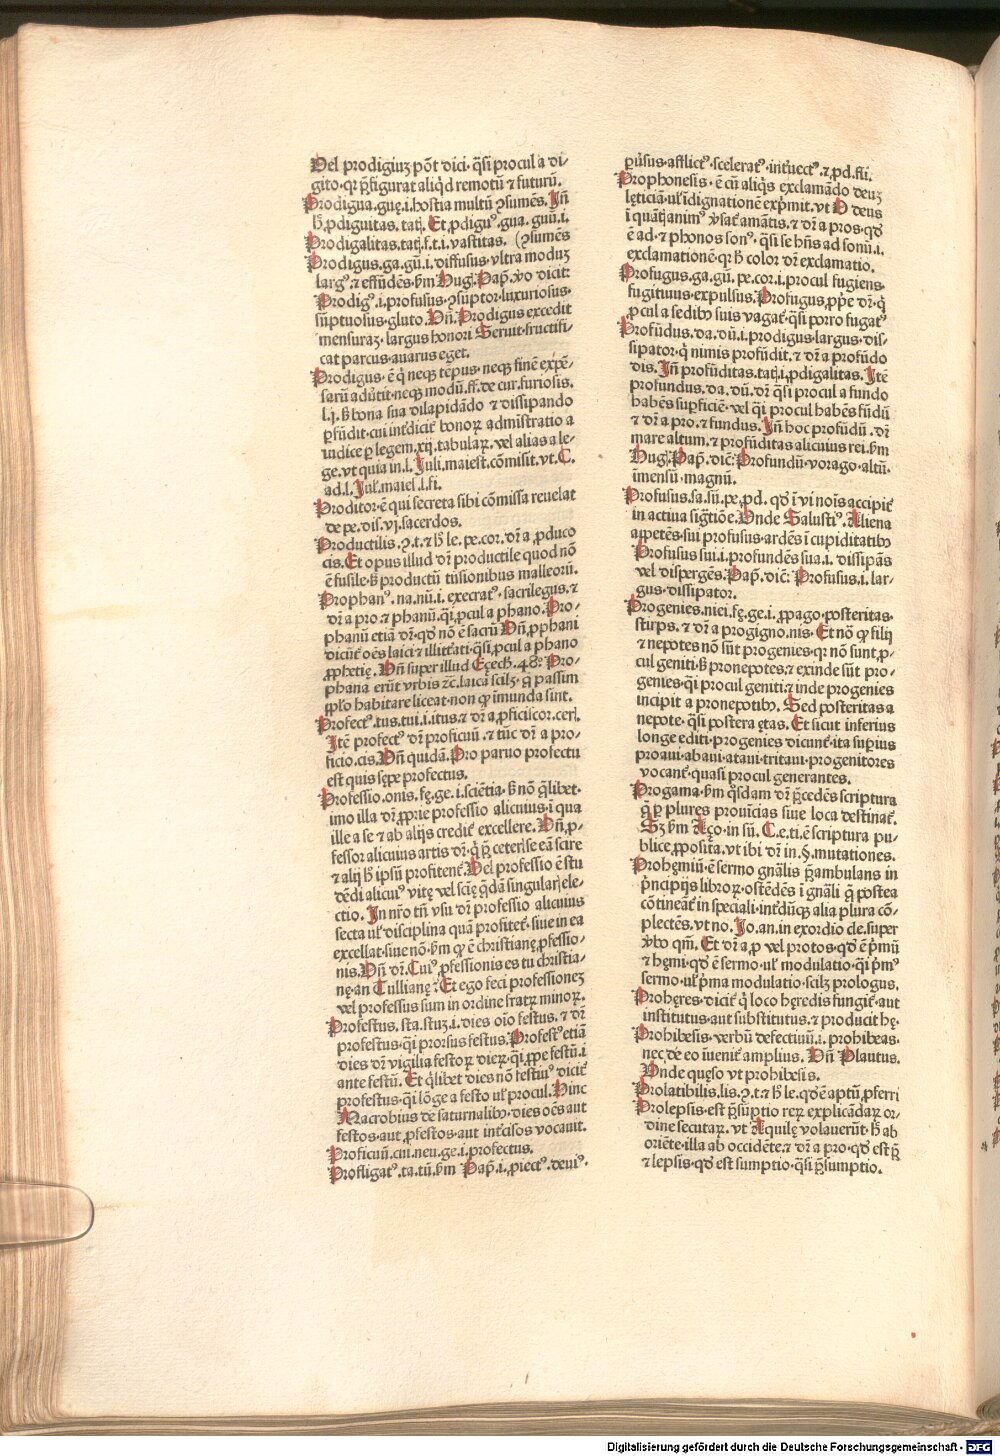 Vel prodigiuʒ põt dici·q̃si procul a di-
gito·qr p̃figurat aliq̃d remotũ ⁊ futurũ.
Prodigua.guę.i.hostia multũ ꝯsumẽs. Iñ
h̃ ꝓdiguitas.tatꝭ. Et ꝓdiguꝰ.gua.guũ.i.
Prodigalitas.tatꝭ.f.t.i.vastitas. (ꝯsumẽs
Prodigus.ga.gũ.i.diffusus·vltra moduʒ
largꝰ.⁊ effũdẽs.ẜm Hug. Pap̃.ṽo dicit:
Prodigꝰ.i.profusus·ꝯsũptor·luxuriosus·
sũptuosus·gluto. Vñ. Prodigus excedit
mensuraʒ·largus honori Seruit·fructifi-
cat parcus·auarus eget.
Prodigus·ẽ q̇ neqʒ tẽpus·neqʒ finẽ expẽ-
sarũ adũtit·neqʒ modũ.ff.de cur.furiosis.
l.j.ẜ bona sua dilapidãdo ⁊ dissipando
ꝓfũdit·cui int̾dicit̃ bonoꝝ admĩstratio a
iudice ꝑ legem.xij.tabulaꝝ.vel alias a le-
ge.vt quia in.l. Juli.maiest.cõmisit.vt. C.
ad.l. Jul̾.maiel.l.fi.
Proditor·ẽ qui secreta sibi cõmissa reuelat
de pe.dis.vj.sacerdos.
Productilis.ꝯ.t.⁊ h̃ le.pe.cor.dr̃ a ꝓduco
cis. Et opus illud dr̃ productile quod nõ
ẽ fusile·ẜ productũ tusionibus malleorũ.
Prophanꝰ.na.nũ.i.execratꝰ·sacrilegus.⁊
dr̃ a pro.⁊ phanũ.q̃i ꝓcul a phano. Pro-
phanũ etiã dr̃·qd nõ ẽ sacrũ Vñ ꝓphani
dicũt̃ oẽs laici ⁊ illitt̾ati·q̃si ꝓcul a phano
ꝓphetię. Vñ super illud Eʒech.48.° Pro-
phana erũt vrbis ⁊c̃.laica scilʒ·q̃ passim
ꝓplo habitare liceat·non ꝙ ĩmunda sint.
Profectꝰ.tus.tui.i.itus.⁊ dr̃ a ꝓficiscor.cerꝭ.
Itẽ profectꝰ dr̃ proficuũ.⁊ tũc dr̃ a pro-
ficio.cis. Vñ quidã. Pro paruo profectu
est quis sępe profectus.
Professio.onis.fę.ge.i.sciẽtia·ẜ nõ q̃libet·
imo illa dr̃ ꝓprie professio alicuius·ĩ qua
ille a se ⁊ ab alijs credit̃ excellere. Vñ ꝓ-
fessor alicuius artis dr̃·q̇ p̃ ceteꝭ se eã scire
⁊ alij h̃ ipsũ profitent̃. Vel professio ẽ stu
dẽdi alicuiꝰ vitę vel scię q̃dã singularꝭ ele-
ctio. In nr̃o tñ vsu dr̃ professio alicuius
secta ul̾ disciplina quã profitet̃·siue in ea
excellat·siue nõ·ẜm ꝙ ẽ christianę ꝓfessio-
nis. Vñ dr̃. Cuiꝰ ꝓfessionis es tu christia-
nę·an Tullianę? Et ego feci professioneʒ
vel professus sum in ordine fratꝝ minoꝝ.
Profestus.sta.stuʒ.i.dies oĩo festus.⁊ dr̃
profestus·q̃i prorsus festus. Profestꝰ etiã
dies dr̃ vigilia festoꝝ dieꝝ·q̃i ꝓpe festũ.i
ante festũ. Et q̃libet dies nõ festiuꝰ dicit̃
profestus·q̃i lõge a festo ul̾ procul. Hinc
Macrobius de saturnalibꝰ·dies oẽs aut
festos·aut ꝓfestos·aut int̾cisos vocauit.
Proficuũ.cui.neu.ge.i.profectus.
Profligatꝰ.ta.tũ.ẜm Pap̃.i.ꝓiectꝰ.deuiꝰ·
ꝑũsus·afflictꝰ·sceleratꝰ·int̾uectꝰ.⁊ ꝓd.fti.
Prophonesis·ẽ cũ aliq̇s exclamãdo deuʒ
lęticiã·ul̾ ĩdignationẽ exp̃mit.vt O deus
i quãt̾ animꝰ ṽsat̃ amãtis.⁊ dr̃ a pros·qd
ẽ ad·⁊ phonos sonꝰ·q̃si se hñs ad sonũ.i.
exclamationẽ·qr h̃ color dr̃ exclamatio.
Profugus.ga.gũ.pe.cor.i.procul fugiens·
fugitiuus·expulsus. Profugus ꝓp̃e dr̃·q̇
ꝓcul a sedibꝰ suis vagat̃·q̃si porro fugatꝰ
Profũdus.da.dũ.i.prodigus·largus·dis-
sipator·q̇ nimis profũdit.⁊ dr̃ a profũdo
dis. Iñ profũditas.tatꝭ.i ꝓdigalitas. Itẽ
profundus.da.dũ.dr̃ q̃si procul a fundo
habẽs suꝑficiẽ·vel q̃i procul habẽs fũdũ
⁊ dr̃ a pro.⁊ fundus. Iñ hoc profũdũ.dr̃
mare altum.⁊ profũditas alicuius rei.ẜm
Hug. Pap̃.dic̃: Profundũ·vorago·altũ·
ĩmensũ·magnũ.
Profusus.sa.sũ.pe.ꝓd. qd ĩ vi noĩs accipit̃
in actiua sigt̃iõe. Vnde Salustiꝰ. Aliena
aꝑpetẽs·sui profusus·ardẽs ĩ cupiditatibꝰ
Profusus sui.i.profundẽs sua.i.dissipãs
vel dispergẽs. Pap̃.dic̃: Profusus.i.lar-
gus·dissipator.
Progenies.niei.fę.ge.i.ꝓpago·posteritas·
stirps.⁊ dr̃ a progigno.nis. Et nõ ꝙ filij
⁊ nepotes nõ sũt progenies·qr nõ sunt ꝓ-
cul geniti·ẜ pronepotes·⁊ exinde sũt pro-
genies·q̃i procul geniti·⁊ inde progenies
incipit a pronepotibꝰ. Sed posteritas a
nepote·q̃si postera ętas. Et sicut inferius
longe editi·progenies dicunt̃·ita suꝑius
proaui·abaui·ataui·tritaui·progenitores
vocant̃·quasi procul generantes.
Progama·ẜm q̃sdam dr̃ p̃cedẽs scriptura
q̃ ꝑ plures prouĩcias siue loca destinat̃.
Sʒ ẜm Açõ·in sũ. C.e.ti.ẽ scriptura pu-
blice ꝓposita.vt ibi dr̃ in.§.mutationes.
Prohęmiũ·ẽ sermo gñalis p̃ambulans in
p̃ncipijs libroꝝ·ostẽdẽs ĩ gñali q̃ postea
cõtineãt̃ in speciali·int̾dũqʒ alia plura cõ-
plectẽs.vt no. Jo.an.in exordio de.super
ṽbo qm̃. Et dr̃ a ꝓ vel protos·qd ẽ p̃mũ
⁊ hęmi·qd ẽ sermo·ul̾ modulatio·q̃i p̃mꝰ
sermo·ul̾ p̃ma modulatio·scilʒ prologus.
Prohęres·dicit̃ q̇ loco hęredis fungit̃·aut
institutus·aut substitutus.⁊ producit hę.
Prohibesis·verbũ defectiuũ.i.prohibeas·
nec de eo ĩuenit̃ amplius. Vñ Plautus.
Vnde quęso vt prohibesis.
Prolatibilis.lis.ꝯ.t.⁊ h̃ le.qd ẽ aptũ ꝓferri
Prolepsis·est p̃sũptio reꝝ explicãdaꝝ or-
dine secutaꝝ.vt Aquilę volauerũt·h̃ ab
oriẽte·illa ab occidẽte.⁊ dr̃ a pro·qd est p̃
⁊ lepsis·qd est sumptio·q̃si p̃sumptio.
Digitalisierung gefördert durch die Deutsche Forschungsgemeinschaft - DFG